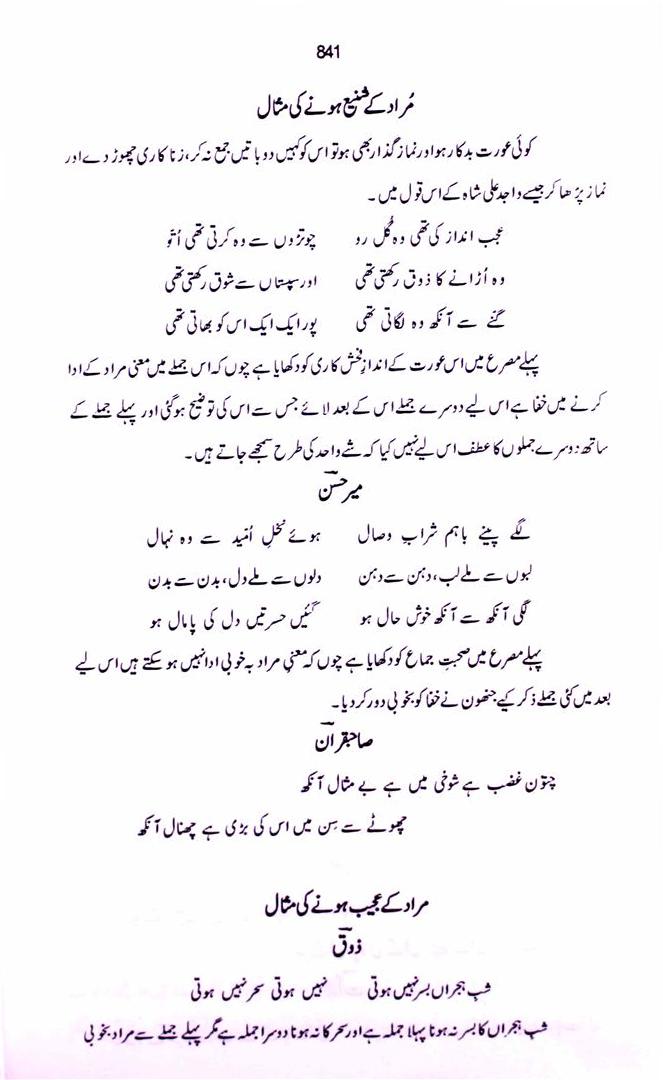 841
مُراد کے شنیع ہونے کی مثال
کوئی عورت بدکار ہو اور نماز گذار بھی ہو تو اس کو کہیں دو باتیں جمع نہ کر، زنا کاری چھوڑ دے اور
نماز پڑھا کر جیسے واجد علی شاہ کے اس قول میں۔
عجب انداز کی تھی وہ گُل رو چوتڑوں سے وہ کرتی تھی اُتّو
وہ اُڑانے کا ذوق رکھتی تھی اور سپستاں سے شوق رکھتی تھی
گنّے سے آنکھ وہ لگاتی تھی پور ایک ایک اس کو بھاتی تھی
پہلے مصرع میں اس عورت کے اندازِ فحش کاری کو دکھایا ہے چوں کہ اس جملے میں معنی مراد کے ادا
کرنے میں خفا ہے اس لیے دوسرے جملے اس کے بعد لائے جس سے اس کی توضیح ہو گئی اور پہلے جملے کے
ساتھ دوسرے جملوں کا عطف اس لیے نہیں کیا کہ شے واحد کی طرح سمجھے جاتے ہیں۔
میر حسن
لگے پینے باہم شرابِ وصال ہوئے نخلِ اُمّید سے وہ نہال
لبوں سے ملے لب، دہن سے دہن دلوں سے ملے دل، بدن سے بدن
لگی آنکھ سے آنکھ خوش حال ہو گئیں حسرتیں دل کی پامال ہو
پہلے مصرع میں صحبتِ جماع کو دکھایا ہے چوں کہ معنیِ مراد بہ خوبی ادا نہیں ہو سکتے ہیں اس لیے
بعد میں کئی جملے ذکر کیے جنھوں نے خفا کو بخوبی دور کر دیا۔
صاحبقران
چتون غضب ہے شوخی میں ہے بے مثال آنکھ
چھوٹے سے سِن میں اس کی بڑی ہے چھنال آنکھ
مراد کے عجیب ہونے کی مثال
ذوق
شبِ ہجراں بسر نہیں ہوتی نہیں ہوتی سحر نہیں ہوتی
شب ہجراں کا بسر نہ ہونا پہلا جملہ ہے اور سحر کا نہ ہونا دوسرا جملہ ہے مگر پہلے جملے سے مراد بخوبی